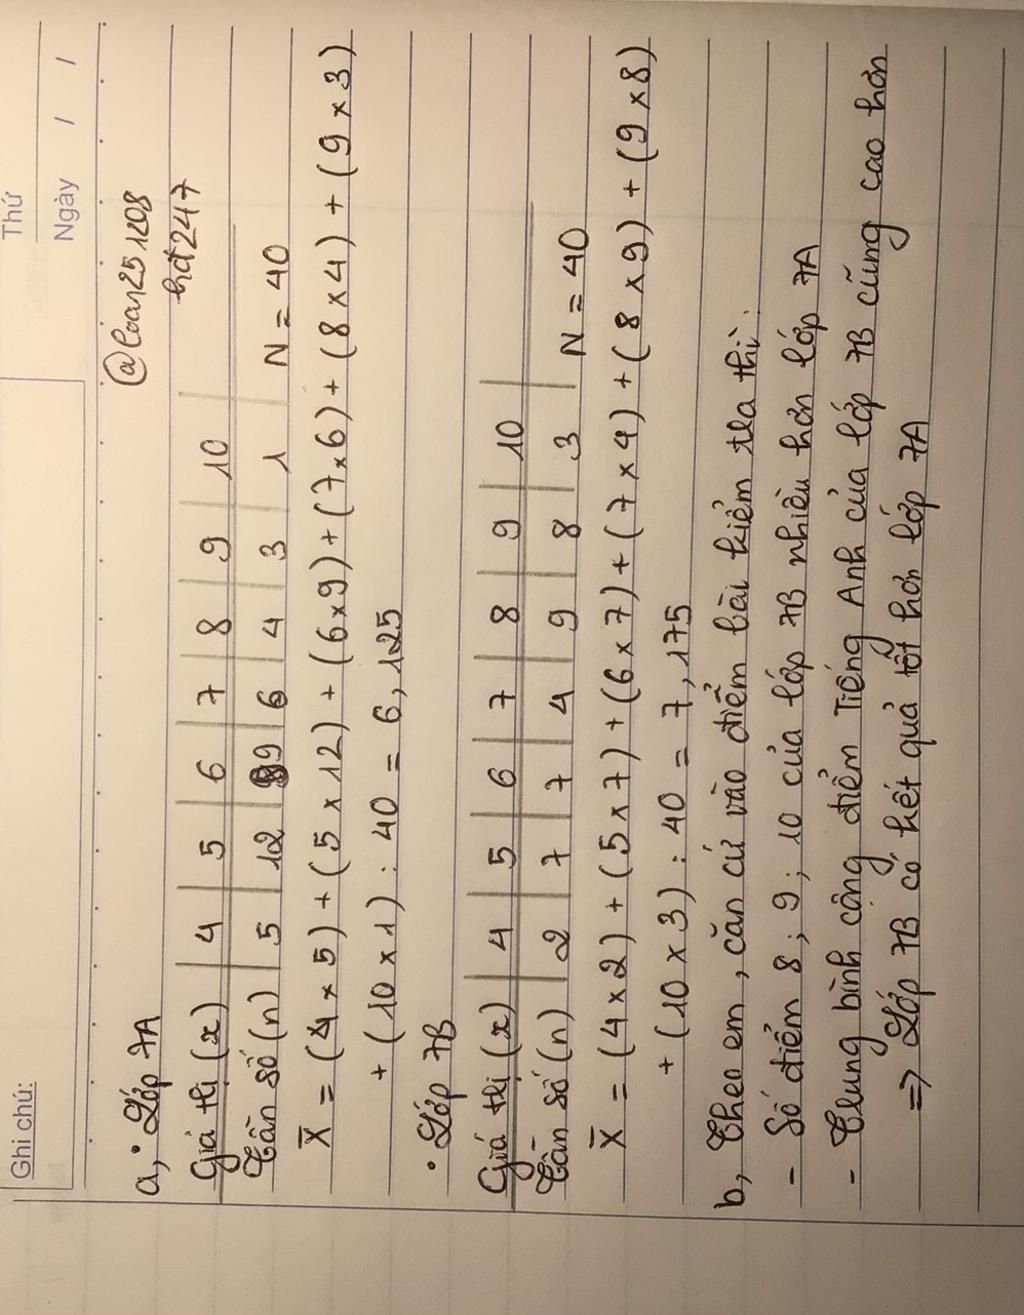 Ghi chú:
Thứ
Ngày / /
@loan251208
hd247
a, • Lớp 7A
Giá trị (x) 4 5 6 7 8 9 10
Tần số (n) 5 12 9 6 4 3 1 N = 40
X̄ = (4 x 5) + (5 x 12) + (6 x 9) + (7 x 6) + (8 x 4) + (9 x 3)
+ (10 x 1) : 40 = 6,125
• Lớp 7B
Giá trị (x) 4 5 6 7 8 9 10
Tần số (n) 2 7 7 4 9 8 3 N = 40
X̄ = (4 x 2) + (5 x 7) + (6 x 7) + (7 x 4) + (8 x 9) + (9 x 8)
+ (10 x 3) : 40 = 7,175
b, Theo em, căn cứ vào điểm bài kiểm tra thì:
- Số điểm 8; 9; 10 của lớp 7B nhiều hơn lớp 7A
- Trung bình cộng điểm Tiếng Anh của lớp 7B cũng cao hơn
=> Lớp 7B có kết quả tốt hơn lớp 7A